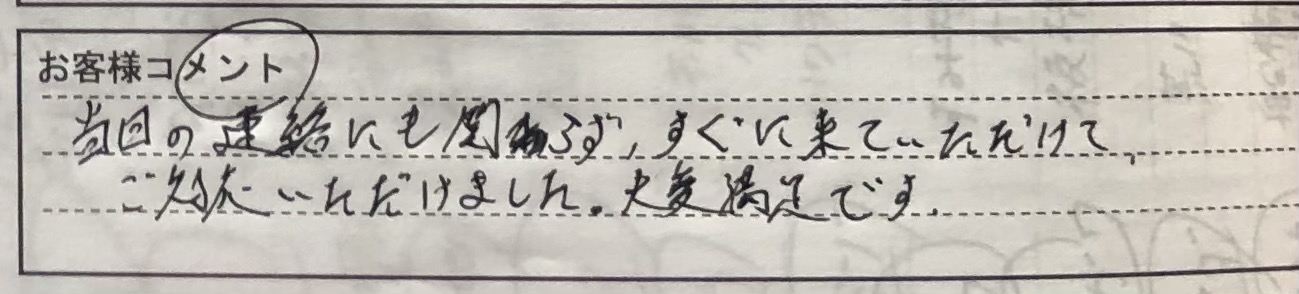 お客様コメント
当日の連絡にも関わらず、すぐに来ていただけて、
ご対応いただけました。大変満足です。